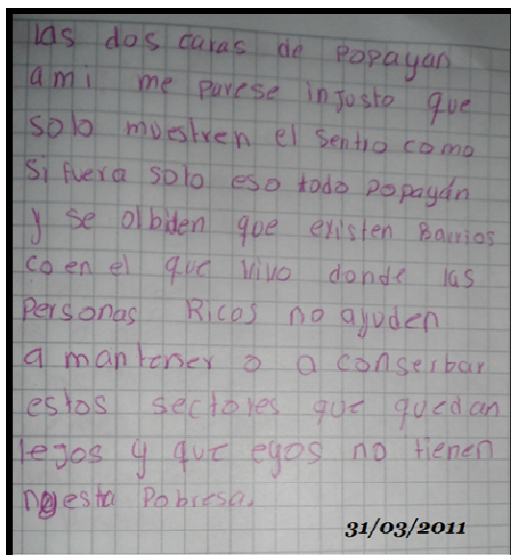 las dos caras de Popayan
a mi me parese injusto que
solo muestren el sentro como
si fuera solo eso todo Popayán
y se olbiden que existen Barrios
co en el que vivo donde las
Personas Ricos no ayuden
a mantener o a conserbar
estos sectores que quedan
lejos y que eyos no tienen
esta Pobresa.
31/03/2011